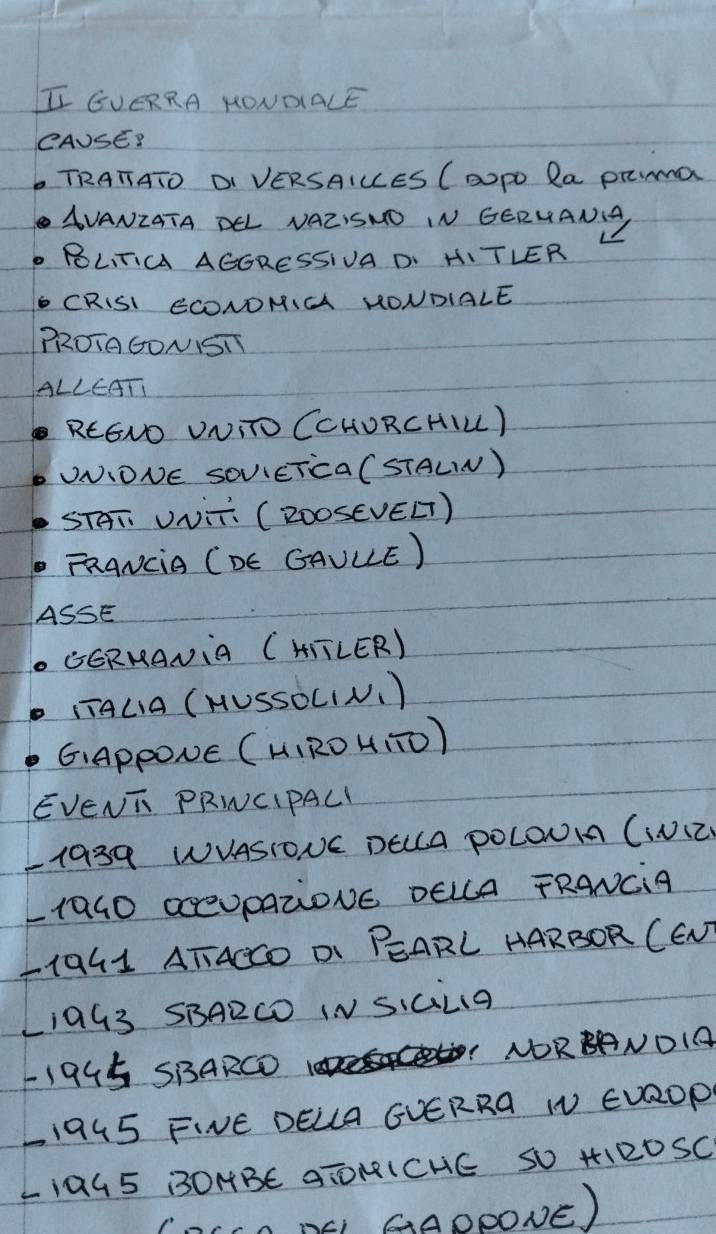 II GUERRA MONDIALE
CAUSE:
• TRATTATO DI VERSAILLES (DOPO la prima
• AVANZATA DEL NAZISMO IN GERMANIA
• POLITICA AGGRESSIVA DI HITLER ↙
• CRISI ECONOMICA MONDIALE
PROTAGONISTI
ALLEATI
• REGNO UNITO (CHURCHILL)
• UNIONE SOVIETICA (STALIN)
• STATI UNITI (ROOSEVELT)
• FRANCIA (DE GAULLE)
ASSE
• GERMANIA (HITLER)
• ITALIA (MUSSOLINI)
• GIAPPONE (HIROHITO)
EVENTI PRINCIPALI
-1939 INVASIONE DELLA POLONIA (INIZI
-1940 OCCUPAZIONE DELLA FRANCIA
-1941 ATTACCO DI PEARL HARBOR (ENT
-1943 SBARCO IN SICILIA
-1944 SBARCO NORMANDIA
-1945 FINE DELLA GUERRA IN EUROP
-1945 BOMBE ATOMICHE SU HIROSC
DEL GIAPPONE)